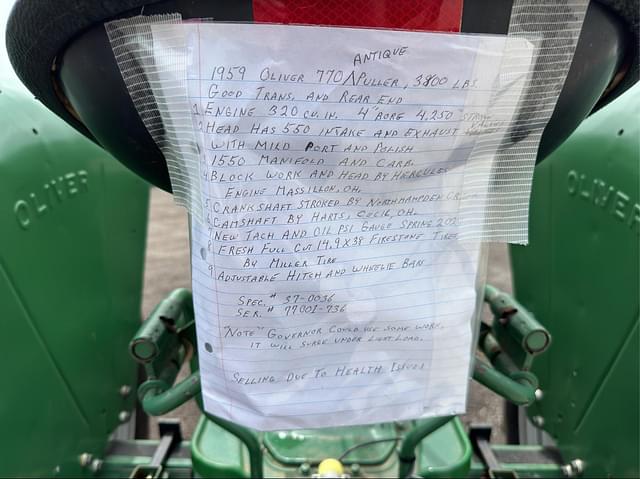 ANTIQUE
1959 OLIVER 770 ^ PULLER, 3800 LBS
GOOD TRANS, AND REAR END
1 ENGINE 320 CU. IN. 4" BORE 4.250
2 HEAD HAS 550 INTAKE AND EXHAUST
WITH MILD PORT AND POLISH
3 1550 MANIFOLD AND CARB.
4 BLOCK WORK AND HEAD BY HERCULES
ENGINE MASSILLON, OH.
5 CRANKSHAFT STROKED BY NORTHHAMPDEN
6 CAMSHAFT BY HARTS, CECIL, OH.
7 NEW TACH AND OIL PSI GAUGE SPRING 202
8 FRESH FULL CUT 14.9 X 38 FIRESTONE TIRES
BY MILLER TIRE
9 ADJUSTABLE HITCH AND WHEELIE BARS
SPEC. # 37-0036
SER. # 77001-736
"NOTE" GOVERNOR COULD USE SOME WORK,
IT WILL SURGE UNDER LIGHT LOAD.
SELLING DUE TO HEALTH ISSUES
OLIVER
OLIVER